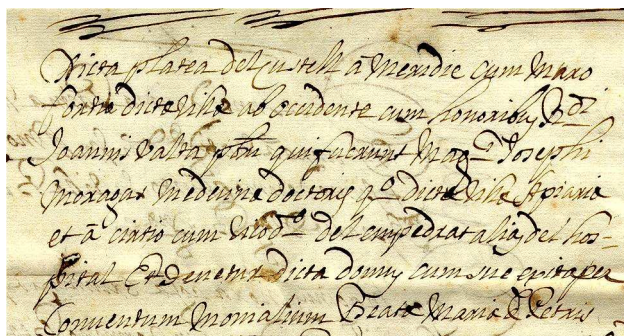 Dicta platea del Castell à Meridie cum Muro
fortie dicte Ville ab occidente cum honoribus Rdi
Joannis Valta pbri qui fuerunt Magci Josephi
Moragas Medicine doctoris qo dicte Ville Apiarie
et à circio cum vico del empedrat alias del hos=
pital Et tenetur dicta domus cum sue per
Conventum Monialium Beate Marie de Petris